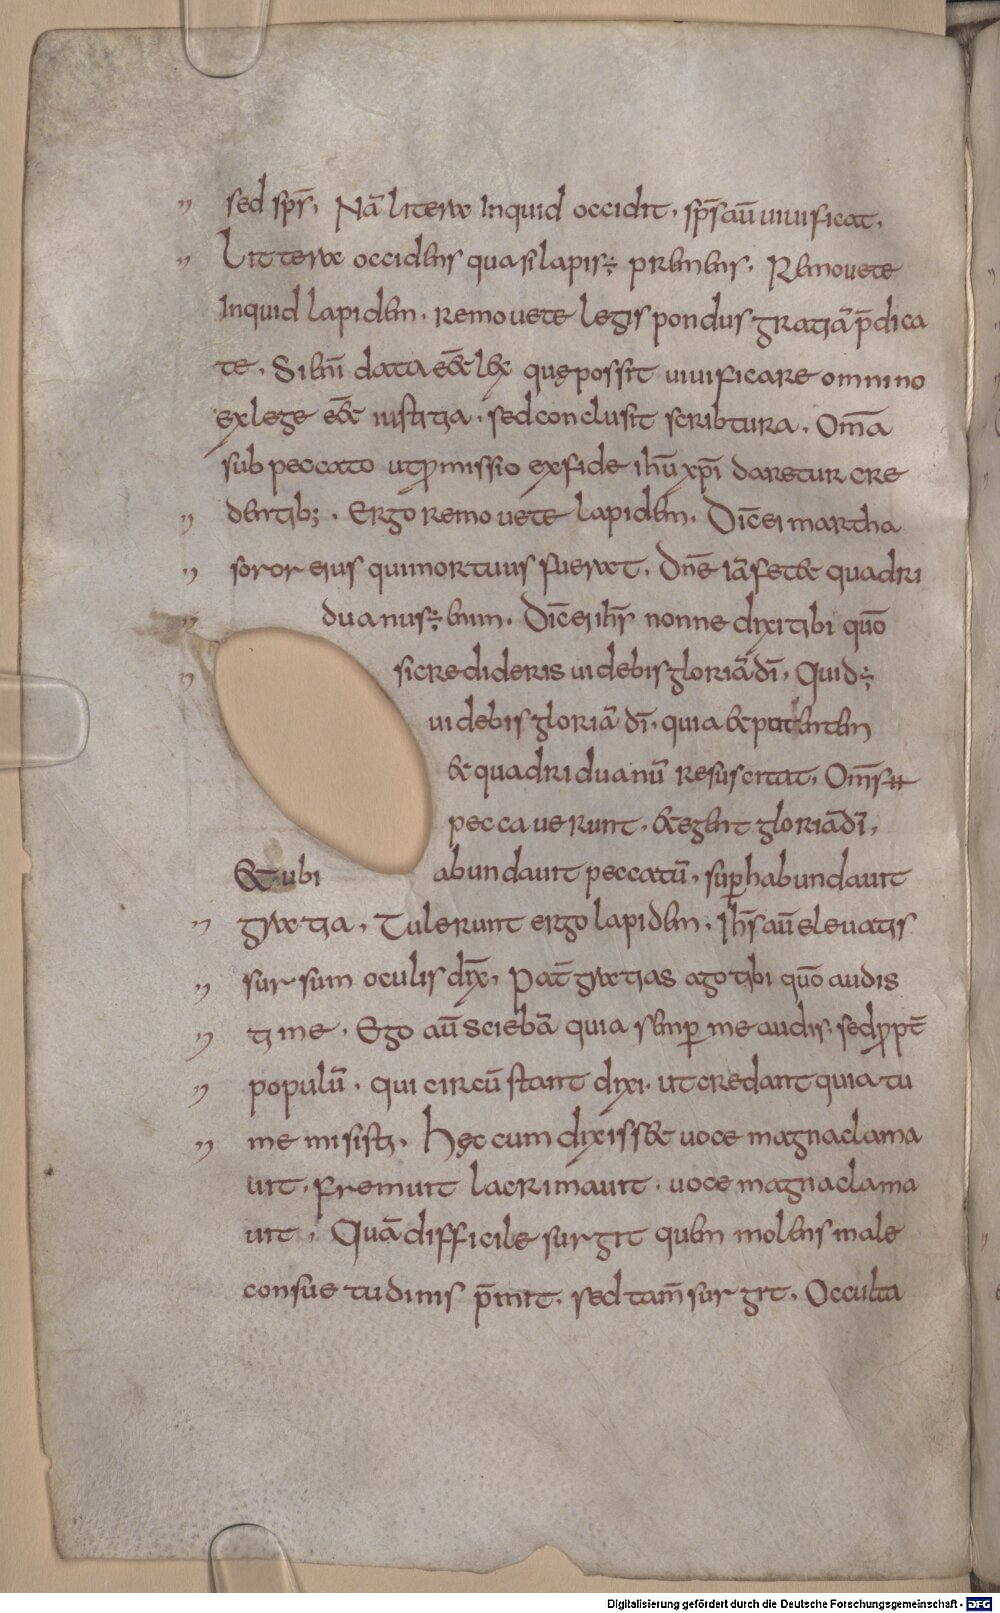 " sed sp̄s, Nā litera Inquid occidit, sp̄s aū uiuificat,
" Littera occidens quasi lapis; premens. Remouete
Inquid lapidem. remouete legis pondus gratiā p̄dica
te. Si enī data eēt lex quę possit uiuificare omnino
ex lege eēt iustitia. sed conclusit scribtura. Om̄a
sub peccato ut ꝓmissio ex fide ihū xp̄i daretur cre
" dentib; . Ergo remouete lapidem. Dic̄ ei martha
" soror eius qui mortuus fuerat. Dn̄e iā fetet quadri
" duanus; enim. Dic̄ ei ih̄s nonne dixi tibi quō
" si credideris uidebis gloriā dī, Quid;
uidebis gloriā dī. quia et putentem
et quadriduanū resuscitat. Om̄s
peccauerunt. et egent gloriā dī,
Et ubi abundauit peccatū, suꝑhabundauit
" gratia, Tulerunt ergo lapidem. Ih̄s aū eleuatis
" sursum oculis dix̄, Pat̄ gratias ago tibi quō audis
" ti me. Ego aū sciebā quia semꝑ me audis. sed ꝓpt̄
" populū. qui circū stant dixi. ut credant quia tu
" me misisti. hęc cum dixisset uoce magna clama
uit. fremuit lacrimauit. uoce magna clama
uit. Quā difficile surgit quem molens male
consuetudinis p̄mit. sed tam̄ surgit. Occulta
Digitalisierung gefördert durch die Deutsche Forschungsgemeinschaft - DFG